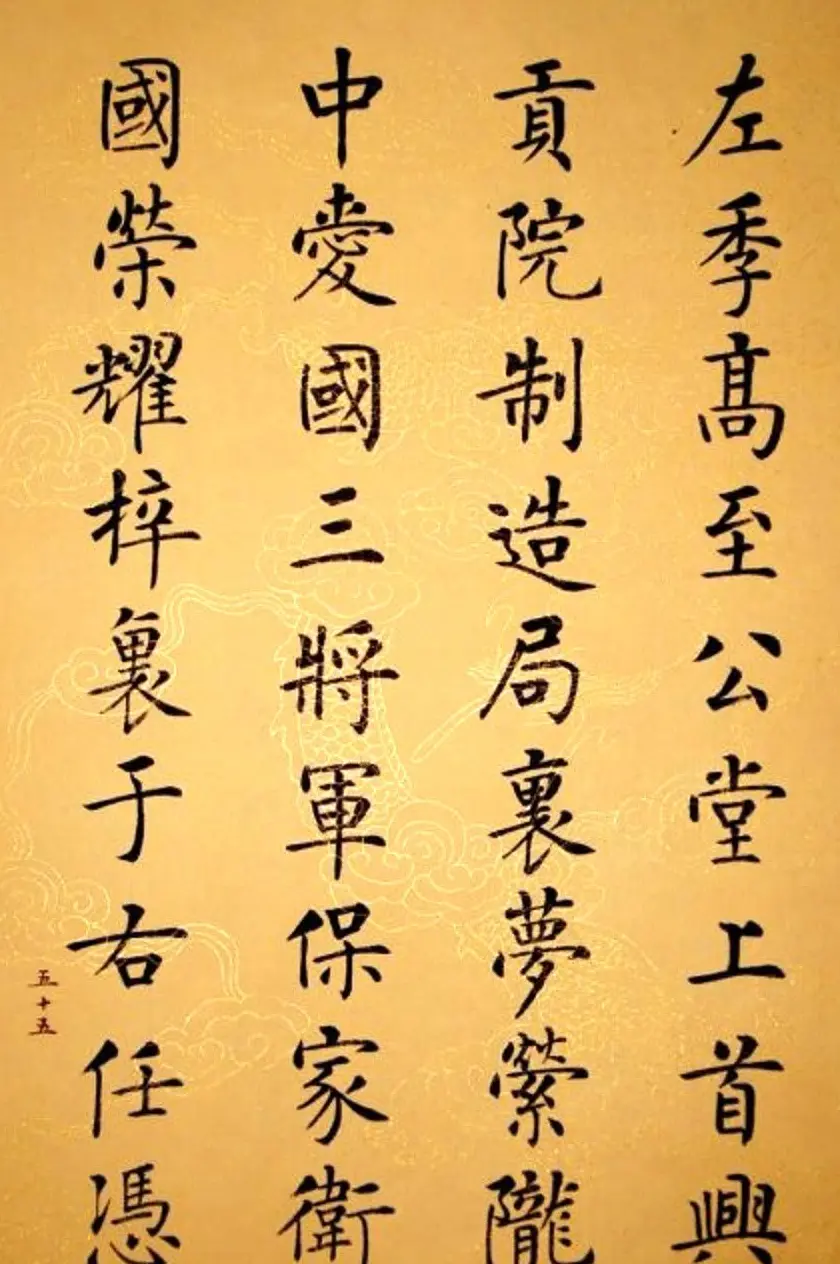 左季髙至公堂上首興
貢院制造局裏夢縈隴
中愛國三將軍保家衛
國榮耀梓裏于右任憑
五十五